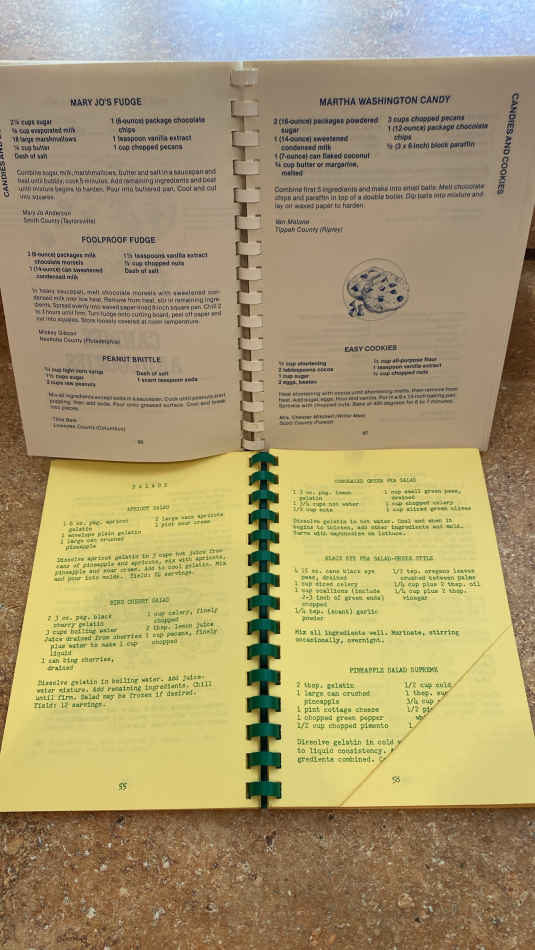 CANDIES AND
MARY JO'S FUDGE
2¼ cups sugar
¾ cup evaporated milk
16 large marshmallows
¼ cup butter
Dash of salt
1 (6-ounce) package chocolate
chips
1 teaspoon vanilla extract
1 cup chopped pecans
Combine sugar, milk, marshmallows, butter and salt in a saucepan and
heat until bubbly, cook 5 minutes. Add remaining ingredients and beat
until mixture begins to harden. Pour into buttered pan. Cool and cut
into squares.
Mary Jo Anderson
Smith County (Taylorsville)
FOOLPROOF FUDGE
3 (6-ounce) packages milk
chocolate morsels
1 (14-ounce) can sweetened
condensed milk
1½ teaspoons vanilla extract
½ cup chopped nuts
Dash of salt
In heavy saucepan, melt chocolate morsels with sweetened con-
densed milk over low heat. Remove from heat, stir in remaining ingre-
dients. Spread evenly into waxed paper-lined 8-inch square pan. Chill 2
to 3 hours until firm. Turn fudge onto cutting board, peel off paper and
cut into squares. Store loosely covered at room temperature.
Mickey Gibson
Neshoba County (Philadelphia)
PEANUT BRITTLE
cup light corn syrup
1½ cups sugar
2 cups raw peanuts
Dash of salt
1 scant teaspoon soda
Mix all ingredients except soda in a saucepan. Cook until peanuts start
popping, then add soda. Pour onto greased surface. Cool and break
into pieces.
Lowndes County (Columbus)
MARTHA WASHINGTON CANDY
2 (16-ounce) packages powdered
sugar
1 (14-ounce) sweetened
condensed milk
1 (7-ounce) can flaked coconut
¼ cup butter or margarine,
melted
3 cups chopped pecans
1 (12-ounce) package chocolate
chips
½ (3 x 6-inch) block paraffin
Combine first 5 ingredients and make into small balls. Melt chocolate
chips and paraffin in top of a double boiler. Dip balls into mixture and
lay on waxed paper to harden.
Van Malone
Tippah County (Ripley)
CANDIES AND COOKIES
EASY COOKIES
½ cup shortening
2 tablespoons cocoa
1 cup sugar
2 eggs, beaten
cup all-purpose flour
1 teaspoon vanilla extract
½ cup chopped nuts
Heat shortening with cocoa until shortening melts, then remove from
heat. Add sugar, eggs, flour and vanilla. Put in a 9 x 13-inch baking pan.
Sprinkle with chopped nuts. Bake at 400 degrees for 6 to 7 minutes.
Mrs. Chester Mitchell
Scott County (Forest)
SALADS
APRICOT SALAD
1 6 oz. pkg. apricot
gelatin
1 envelope plain gelatin
1 large can crushed
pineapple
2 large cans apricots
1 pint sour cream
Dissolve apricot gelatin in 2 cups hot juice from
cans of pineapple and apricots, mix with apricots,
pineapple and sour cream. Add to cool gelatin. Mix
and pour into molds. Yield: 24 servings.
BING CHERRY SALAD
2 3 oz. pkg. black
cherry gelatin
3 cups boiling water
Juice drained from cherries
plus water to make 1 cup
liquid
1 can bing cherries,
drained
1 cup celery, finely
chopped
2 tbsp. lemon juice
1 cup pecans, finely
chopped
Dissolve gelatin in boiling water. Add juice-
water mixture. Add remaining ingredients. Chill
until firm. Salad may be frozen if desired.
Yield: 12 servings.
55
CONGEALED GREEN PEA SALAD
1 3 oz. pkg. lemon
gelatin
1 3/4 cups hot water
1/2 cup nuts
1 cup small green peas,
drained
1 cup chopped celery
1 cup sliced green olives
Dissolve gelatin in hot water. Cool and when it
begins to thicken, add other ingredients and mold.
Serve with mayonnaise on lettuce.
BLACK EYE PEA SALAD-GREEK STYLE
4 15 oz. cans black eye
peas, drained
1 cup diced celery
1 cup scallions (include
2-3 inch of green ends)
chopped
1/4 tsp. (scant) garlic
powder
1/2 tsp. oregano leaves
crushed between palms
1/4 cup plus 2 tbsp. oil
1/4 cup plus 2 tbsp.
vinegar
Mix all ingredients well. Marinate, stirring
occasionally, overnight.
PINEAPPLE SALAD SUPREME
2 tbsp. gelatin
1 large can crushed
pineapple
1 pint cottage cheese
1 chopped green pepper
1/2 cup chopped pimento
1/2 cup cold
1 tbsp.
3/4 cup
1/2
1
Dissolve gelatin in cold
to liquid consistency.
gredients combined.
56